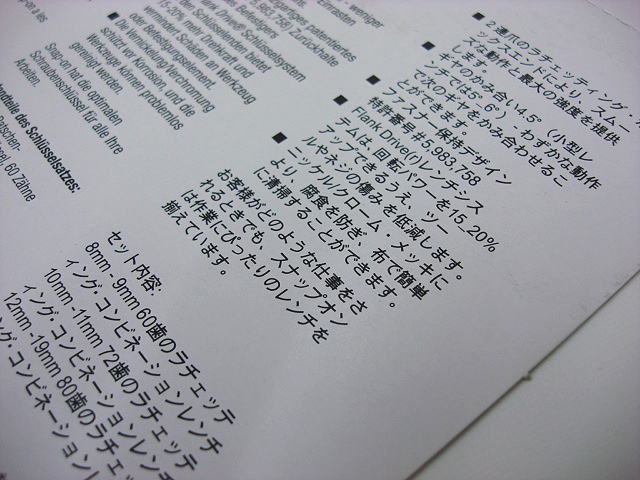 weniger
Zinnrasten
artiges patentiertes
5.983.758) Zurückhalte
Befestigers
Flank Drive® Schlüsselsystem
den Schlüsselenden bietet
15-20% mehr Drehkraft und
vermindert Schäden an Werkzeug
oder Befestigungselement.
Die Vernickelung/Verchromung
schützt vor Korrosion, und die
Werkzeuge können problemlos
gereinigt werden.
Snap-on hat die optimalen
Schraubenschlüssel für alle Ihre
Arbeiten.
des Schlüsselsatzes:
60 Zähne
■ 2 連爪のラチェッティング・
ツースエンドにより、スムー
ズな動作と最大の強度を提供
します。
■ ギヤのかみ合い4.5°（小型レ
ンチでは5、6°）- わずかな動作
で次のギヤをかみ合わせるこ
とができます。
■ ファスナー保持デザイン
特許番号 #5,983,758
■ Flank Drive(r)レンチンス
テムは、回転パワーを15_20%
アップできるうえ、ツー
ルやネジの傷みを低減します。
■ ニッケル/クローム・メッキに
より、腐食を防ぎ、布で簡単
に清掃することができます。
お客様がどのような仕事をさ
れるときでも、スナップオン
は作業にぴったりのレンチを
揃えています。
セット内容:
8mm - 9mm 60歯のラチェッテ
ィング・コンビネーションレンチ
10mm -11mm 72歯のラチェッテ
ィング・コンビネーションレンチ
12mm -19mm 80歯のラチェッ
ング・コンビネーション